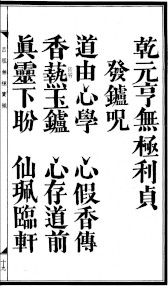 乾元亨無極利貞
發鑪呪
道由心學 心假香傳
香爇玉鑪 心存道前
眞靈下盼 仙珮臨軒